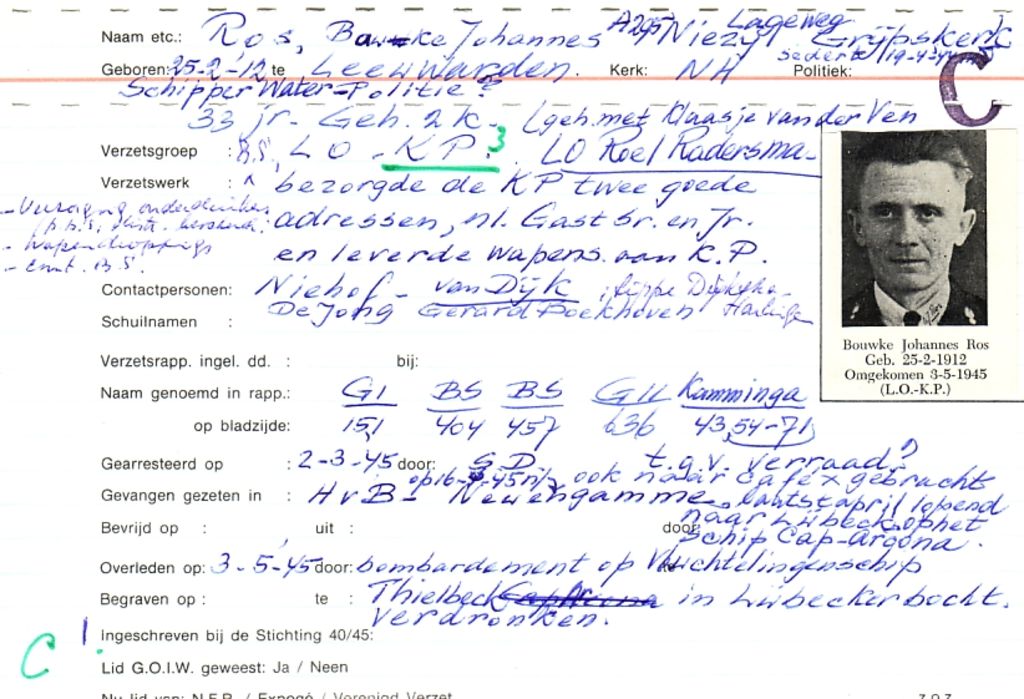 Naam etc.: Ros, Bauke Johannes A295 Niezijl Lageweg Grijpskerk
Geboren: 25-2-'12 te Leeuwarden. Kerk: NH Politiek: sedert 19-4-44
Schipper Water-Politie?
33 jr- Geh. 2 k- (geh. met Klaasje van der Ven
C
Verzetsgroep : B.S., LO - KP. 3 LO Roel Radersma-
Verzetswerk : bezorgde de KP twee goede
- Verzorging onderduikers adressen, nl. Gast Sr. en Jr.
- wapendroppings en leverde wapens aan K.P.
- B.S.
Contactpersonen: Niehof - van Dijk, Harlingen
Schuilnamen : De Jong Gerard Boekhoven
Bouwke Johannes Ros
Geb. 25-2-1912
Omgekomen 3-5-1945
(L.O.-K.P.)
Verzetsrapp. ingel. dd. : bij:
Naam genoemd in rapp.: G1 BS BS G11 Kamminga
op bladzijde: 151 404 457 636 43,54-71
Gearresteerd op : 2-3-45 door: SD t.g.v. verraad?
ook naar café x gebracht
Gevangen gezeten in : HvB - Neuengamme, laatst april lopend
Bevrijd op : uit : door: naar Lübeck op het
schip Cap-Argona.
Overleden op: 3-5-45 door: bombardement op vluchtelingenschip
Begraven op : te : Thielbeck in Lübeckerbocht.
verdronken.
Ingeschreven bij de Stichting 40/45:
C
Lid G.O.I.W. geweest: Ja / Neen
Nu lid van: N.F.R. / Expogé / Verenigd Verzet